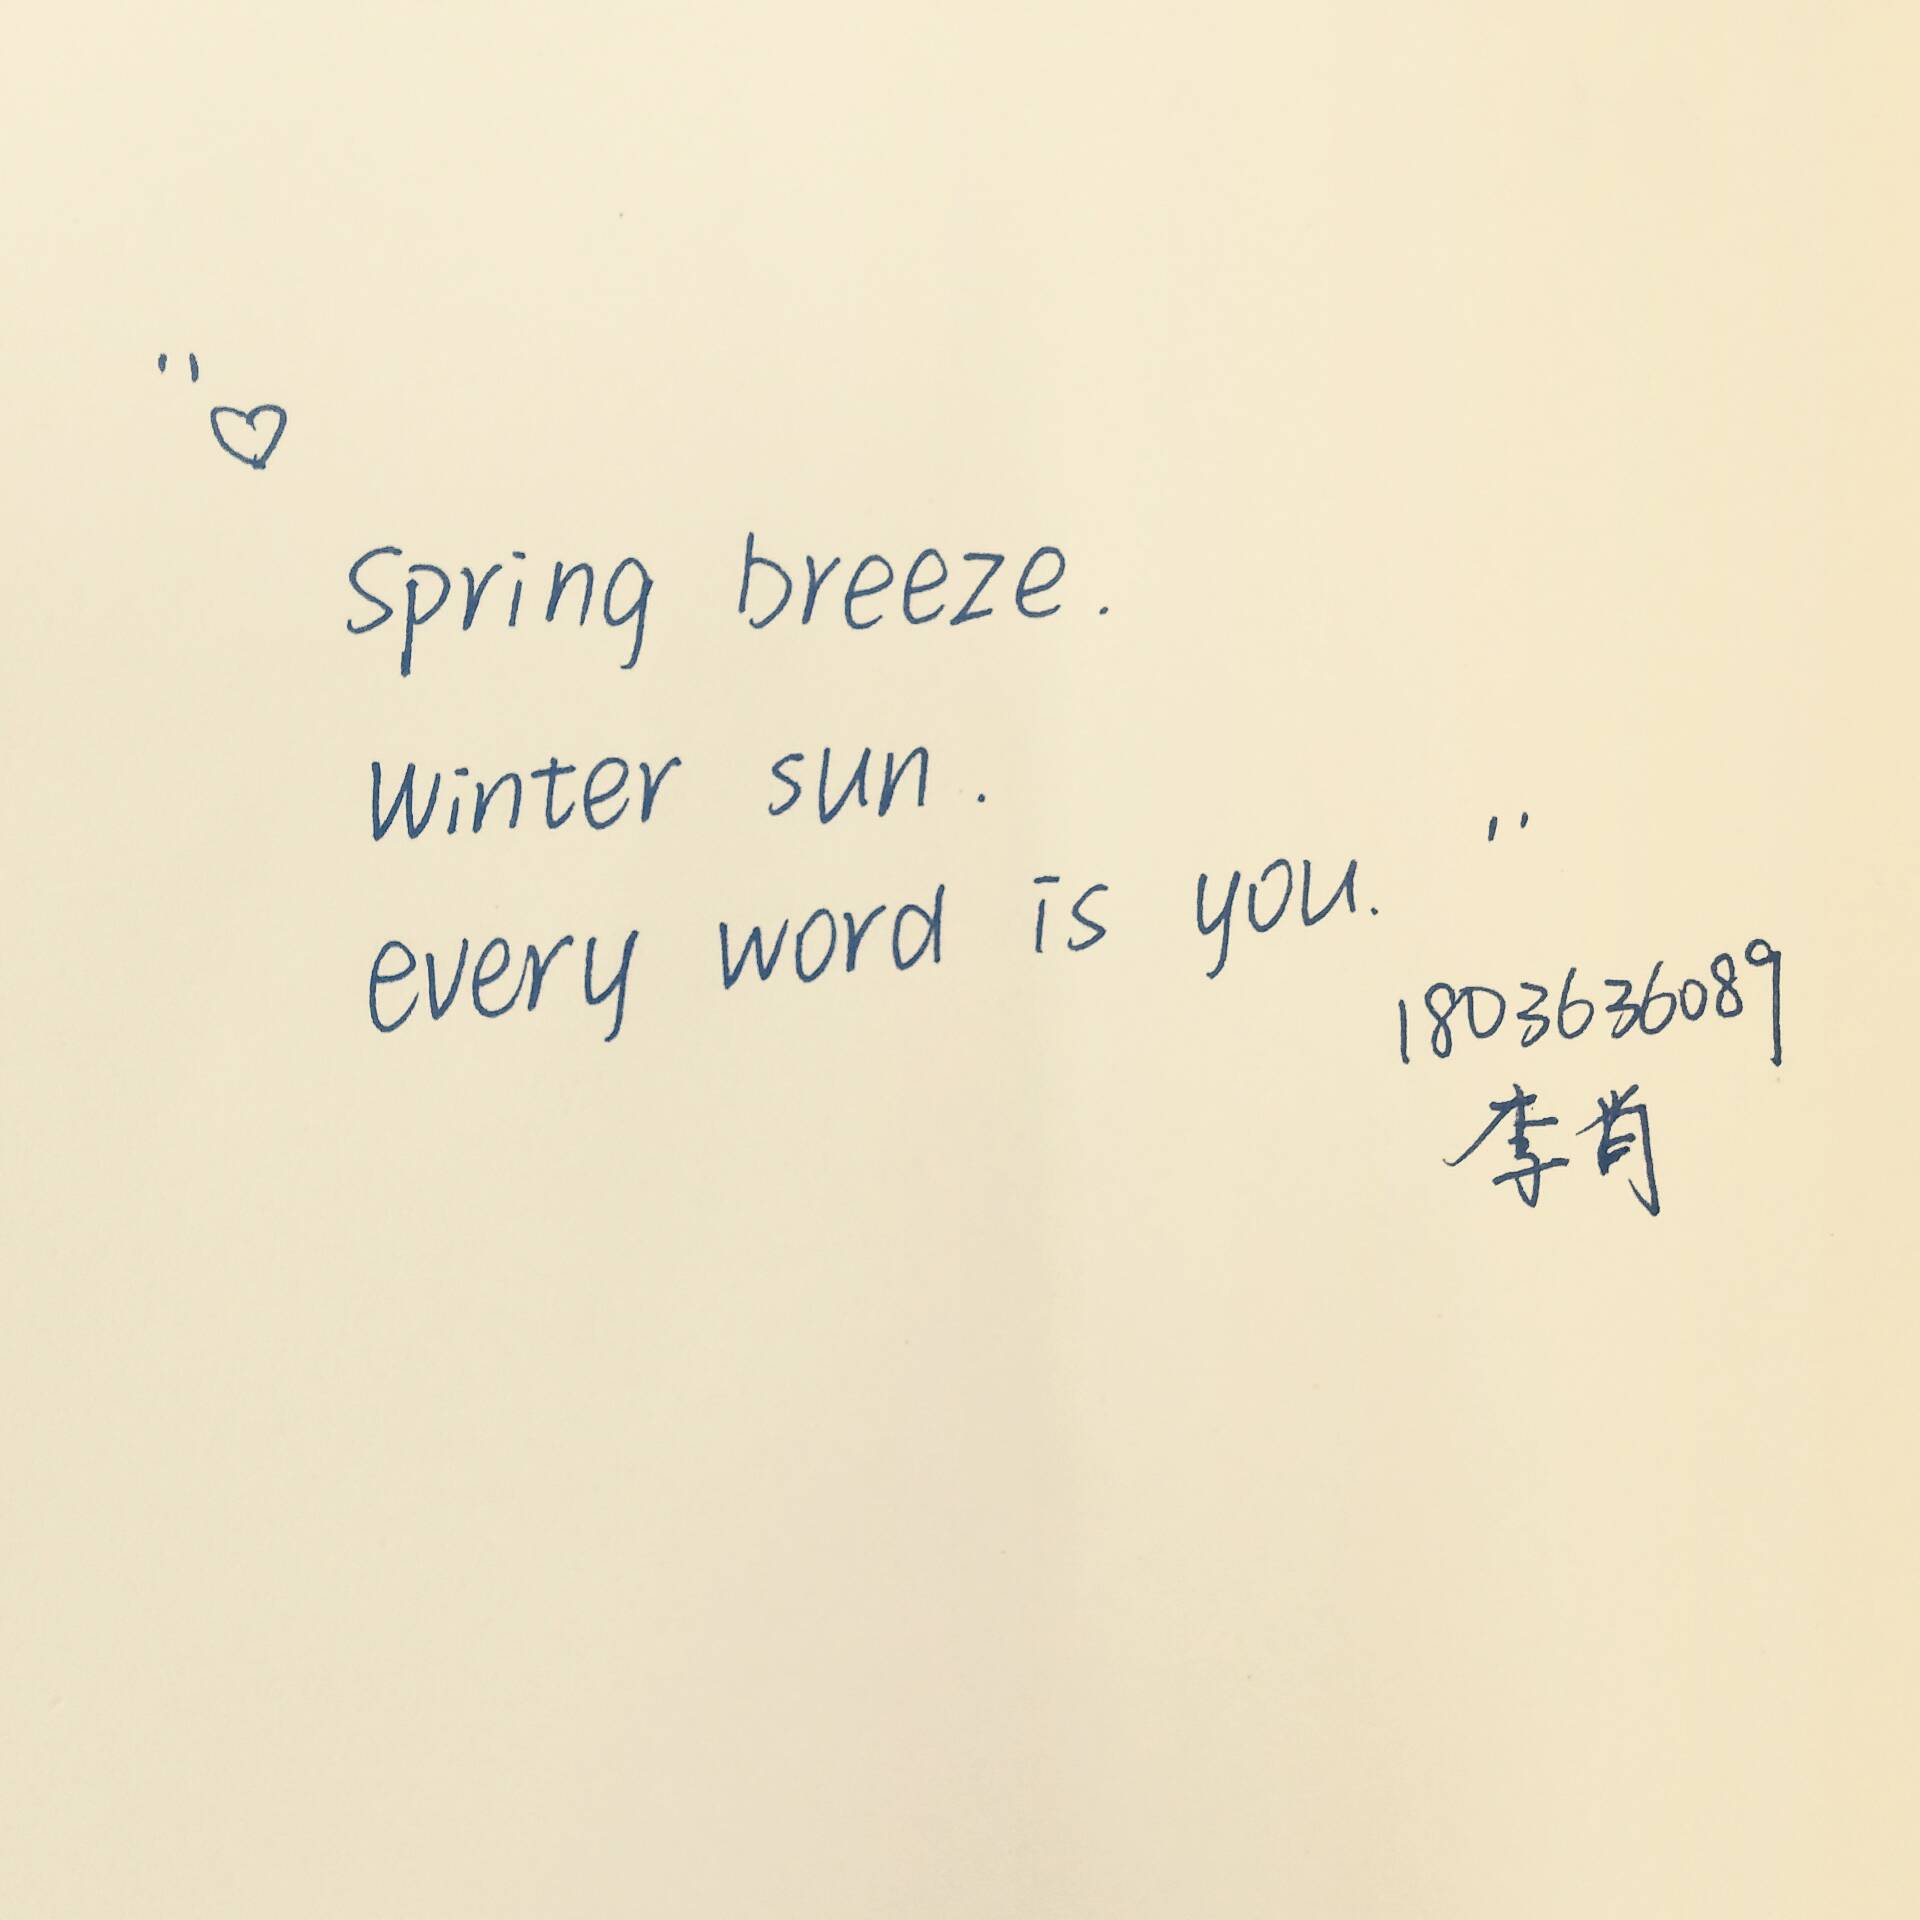 "♡
Spring breeze.
Winter sun.
every word is you."
1803636089
李肖